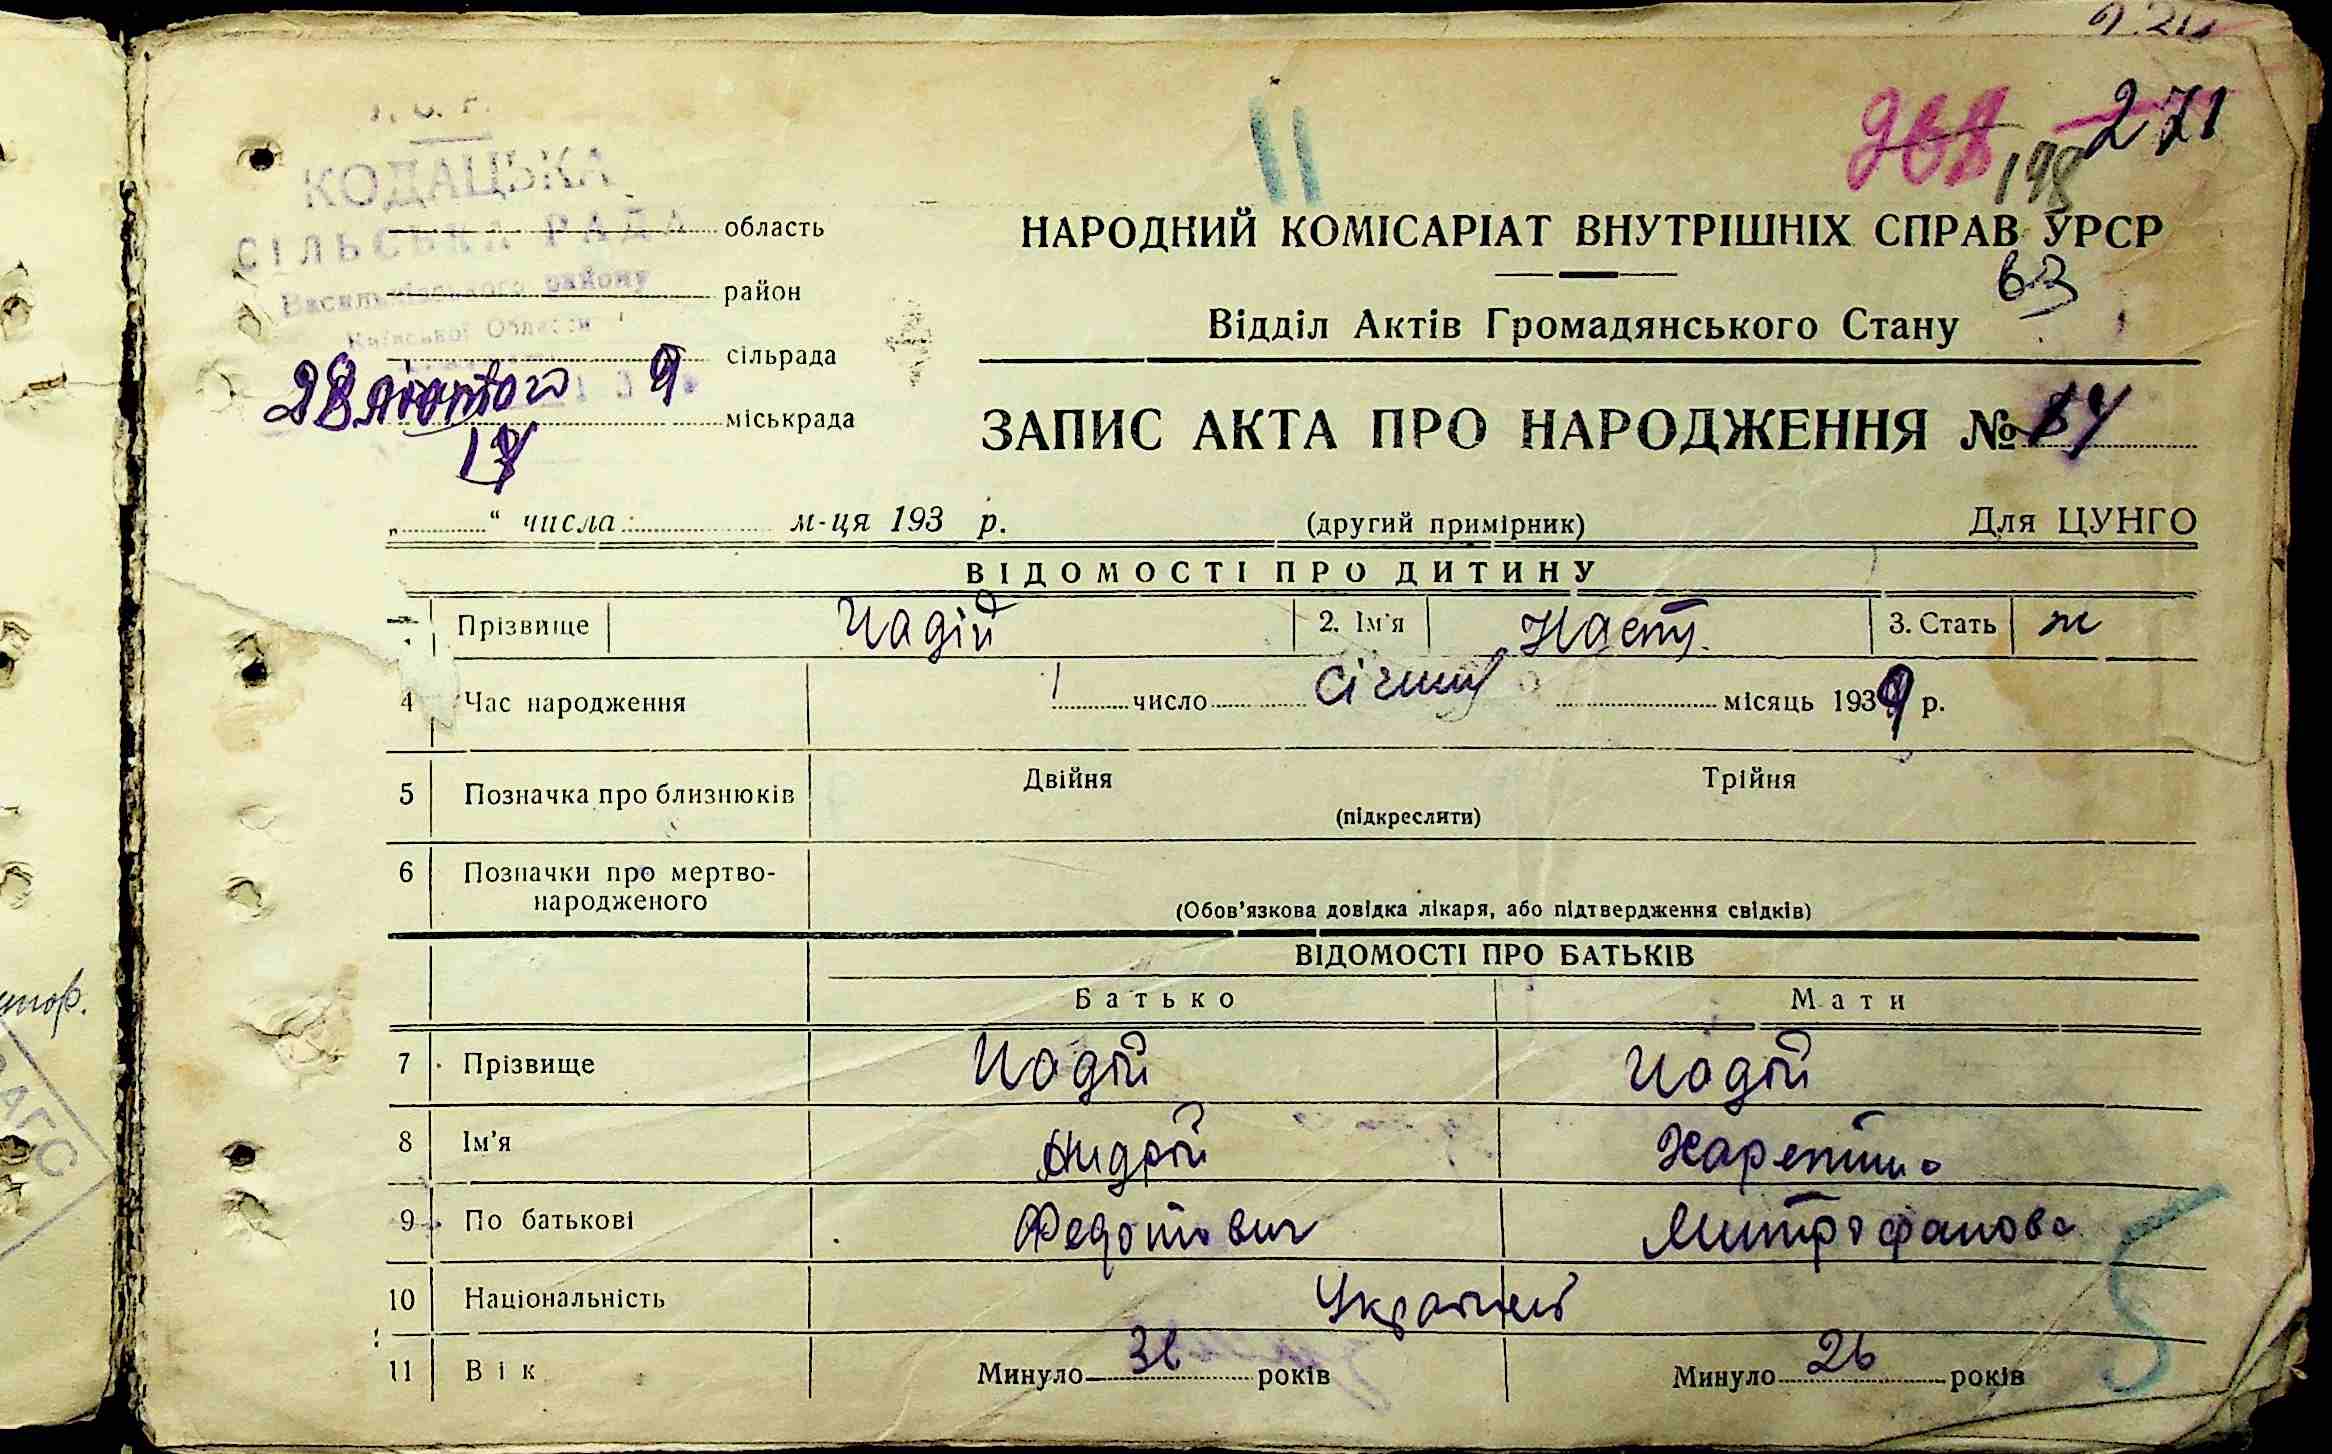 271
198
КОДАЦЬКА
СІЛЬСЬКА РАДА
Васильківського району
Київської Области
область
район
сільрада
міськрада
28 лютого 9
17
НАРОДНИЙ КОМІСАРІАТ ВНУТРІШНІХ СПРАВ УРСР
63
Відділ Актів Громадянського Стану
ЗАПИС АКТА ПРО НАРОДЖЕННЯ №
„ “ числа м-ця 193 р.
(другий примірник)
Для ЦУНГО
ВІДОМОСТІ ПРО ДИТИНУ
Прізвище
2. Ім'я Наст.
3. Стать ж
4 Час народження 1 число січня місяць 1939 р.
5 Позначка про близнюків Двійня Трійня
(підкреслити)
6 Позначки про мертво-
народженого
(Обов'язкова довідка лікаря, або підтвердження свідків)
ВІДОМОСТІ ПРО БАТЬКІВ
Батько Мати
7 Прізвище
8 Ім'я Андрій
9 По батькові Федотович Митрофанова
10 Національність
11 Вік Минуло років Минуло 26 років